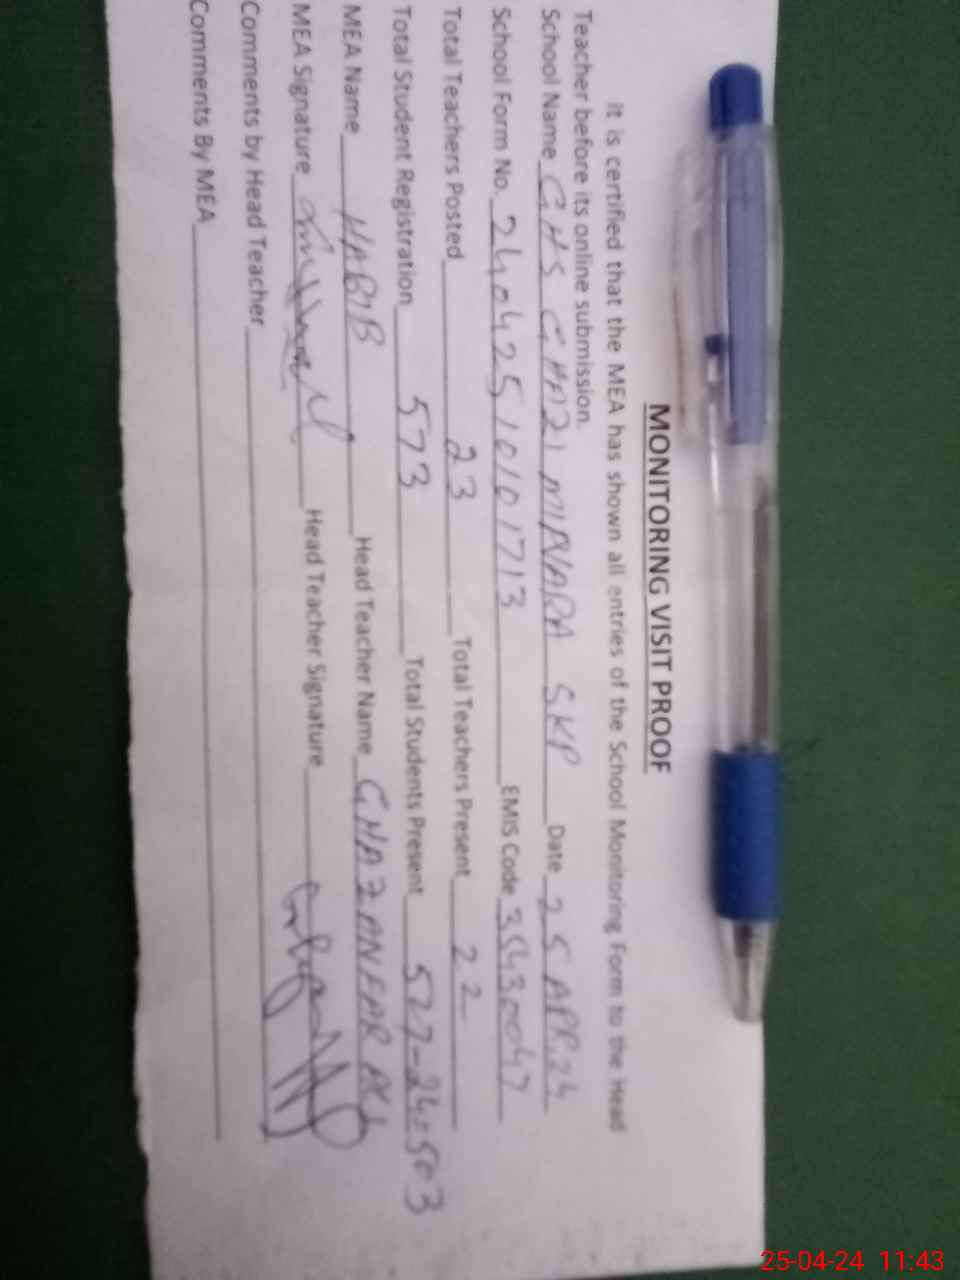 MONITORING VISIT PROOF
It is certified that the MEA has shown all entries of the School Monitoring Form to the Head
Teacher before its online submission.
School Name GHS GHAZI MINARA SKP Date 25 APR.24
School Form No. 24042510101713 EMIS Code 35430047
Total Teachers Posted 23 Total Teachers Present 22
Total Student Registration 573 Total Students Present 527-24=503
MEA Name HABIB Head Teacher Name GHAZANFAR Ali
MEA Signature Head Teacher Signature
Comments by Head Teacher
Comments By MEA
25-04-24 11:43